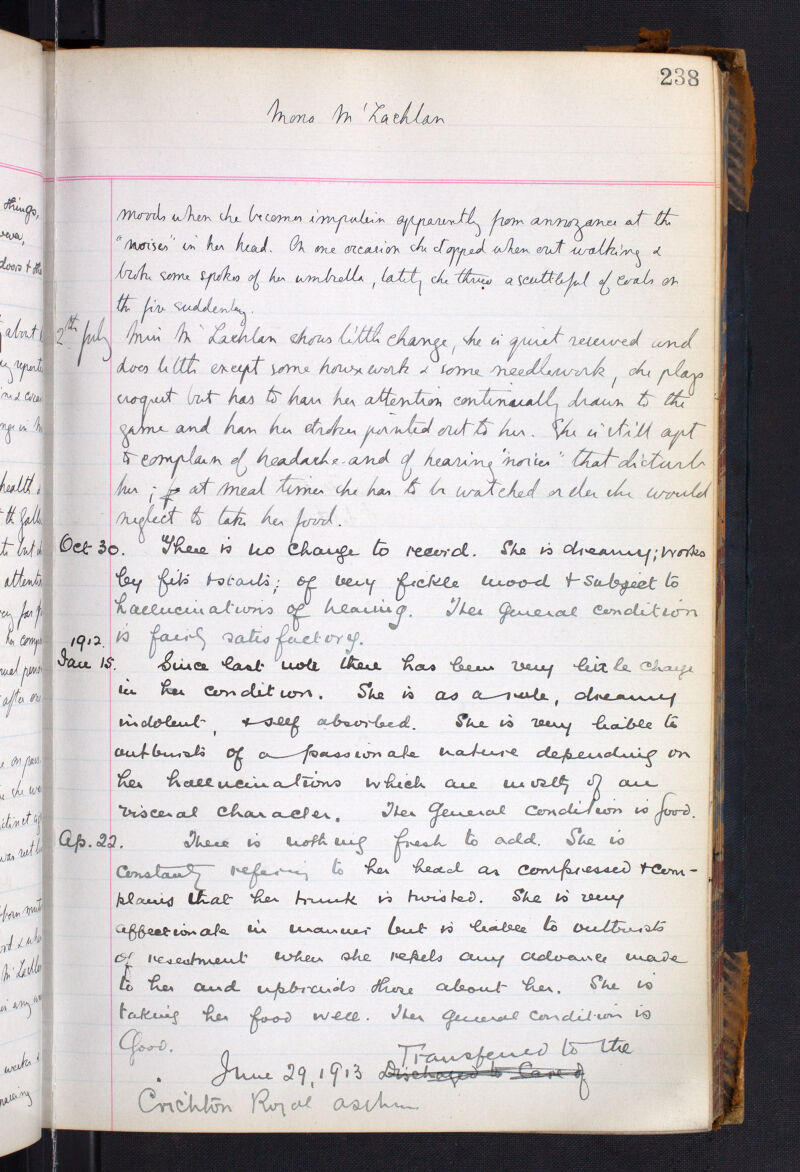 238
Mona McLachlan
moods when she becomes impulsive apparently from annoyance at the
"noises" in her head. On one occasion she stopped when out walking &
broke some spokes of her umbrella, lately she threw a scuttleful of coals on
the fire suddenly.
2th July Miss McLachlan shows little change, she is quiet reserved and
does little except some house work & some needlework, she plays
croquet but has to have her attention continually drawn to the
game and have her strokes pointed out to her. She is still apt
to complain of headache and of hearing "noises" that disturb
her; at meal times she has to be watched or else she would
neglect to take her food.
Oct 30. There is no change to record. She is dreamy; works
by fits & starts; of very fickle mood & subject to
hallucinations of hearing. Her general condition
is fairly satisfactory.
1912.
Jan 15. Since last note there has been very little change
in her condition. She is as a rule, dreamy
indolent, & self absorbed. She is very liable to
outbursts of a passionate nature depending on
her hallucinations which are mostly of an
visceral character. Her general condition is good.
Ap. 22. There is nothing fresh to add. She is
constantly refering to her head as compressed & com-
plains that her trunk is twisted. She is very
affectionate in manner but is liable to outbursts
of resentment when she repels any advance made
to her and upbraids those about her. She is
taking her food well. Her general condition is
Good.
Transferred to the
June 29, 1913 Discharged to Care of
Crichton Royal asylum
things,
doors & the
about
reports
health &
attention
her comp
after
weeks &